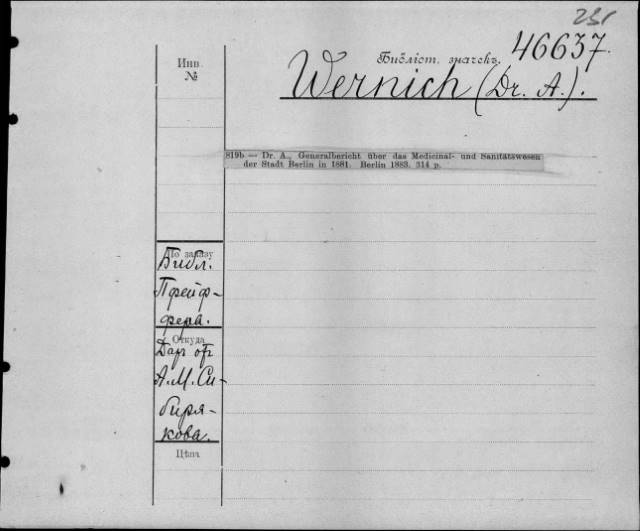 231
Инв. №
Библіот. значекъ. 46637.
Wernich (Dr. A.).
819b — Dr. A., Generalbericht über das Medicinal- und Sanitätswesen
der Stadt Berlin in 1881. Berlin 1883. 314 p.
По заказу
Библ.
Пфейф-
фера.
Откуда
Дар от
А. М. Си-
биря-
кова.
Цѣна